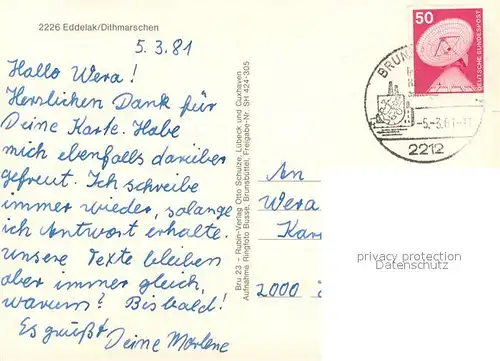 2226 Eddelak/Dithmarschen
5.3.81
Hallo Wera!
Herzlichen Dank für
Deine Karte. Habe
mich ebenfalls darüber
gefreut. Ich schreibe
immer wieder, solange
ich Antwort erhalte.
Unsere Texte bleiben
aber immer gleich,
warum? Bis bald!
Es grüßt
Deine Marlene
Bru 23 - Rubin-Verlag Otto Schulze, Lübeck und Cuxhaven
Aufnahme Ringfoto Busse, Brunsbüttel, Freigabe-Nr. SH 424-305
50
DEUTSCHE BUNDESPOST
BRUNS
-5.-3.81-11
2212
An
Wera
Kar
2000
privacy protection
Datenschutz